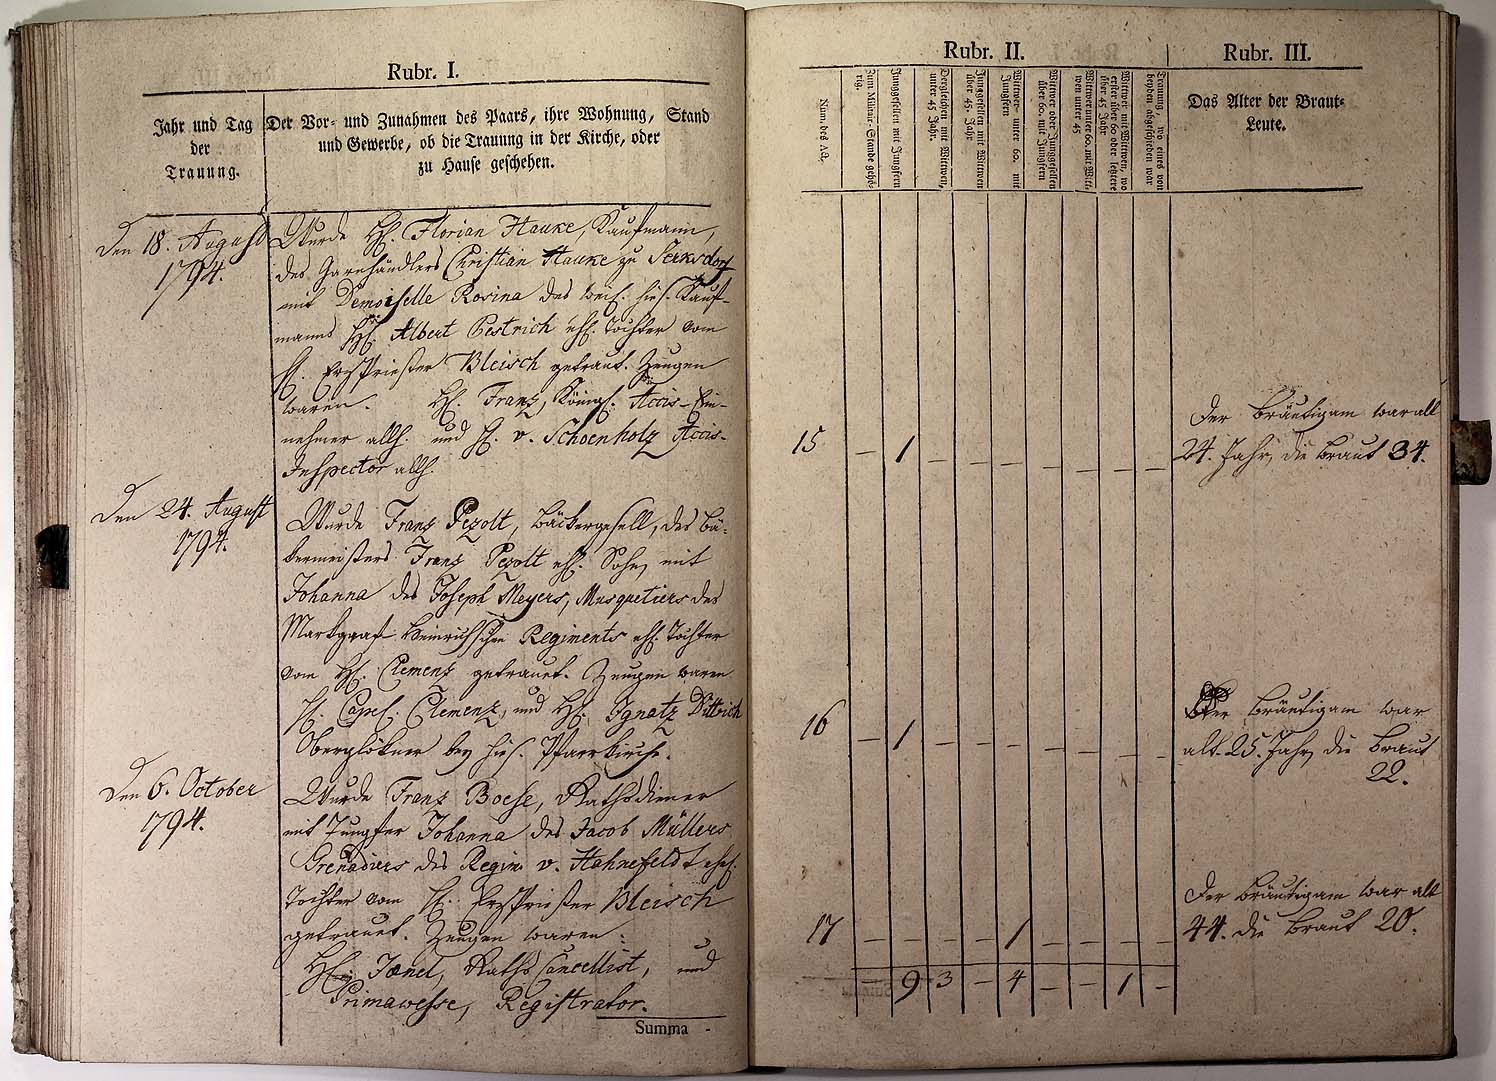 Rubr. I.
Jahr und Tag
der
Trauung.
Der Vor- und Zunahmen des Paars, ihre Wohnung, Stand
und Gewerbe, ob die Trauung in der Kirche, oder
zu Hause geschehen.
Den 18. August
1794.
Wurde H. Florian Hauke, Kaufmann,
des Garnhändlers Christian Hauke zu
mit Demoiselle Rosina des hies. Kauf-
manns H. Albert Pestrich ehl. Tochter vom
H. Erzpriester Bleisch getraut. Zeugen
waren. H. Franz, Königl. Accis-Ein-
nehmer allh. und H. v. Schoenholz Accis-
Inspector allh.
Den 24. August
1794.
Wurde Franz Pezolt, Bäckergesell, des Bä-
kermeisters Franz Pezolt ehl. Sohn, mit
Johanna des Joseph Meyers, Musquetiers des
Markgraf Heinrichschen Regiments ehl. Tochter
vom H. Clemenz getrauet. Zeugen waren
H. Capel. Clemenz, und H. Ignatz Dittrich
Oberglökner bey hies. Pfarrkirche.
Den 6. October
1794.
Wurde Franz Boese, Rathsdiener
mit Jungfer Johanna des Jacob Müllers
Grenadiers des Regim v. Hahnefeldt ehel.
Tochter vom H. Erzpriester Bleisch
getrauet. Zeugen waren:
H. Jænel, Raths Cancellist, und
Primawesse, Registrator.
Summa -
Rubr. II.
Num. des Act.
Zum Militär-Stande gehö-
rig.
Junggesellen mit Jungfern
Dergleichen mit Wittwen,
unter 45 Jahr.
Junggesellen mit Wittwen
über 45. Jahr
Wittwer unter 60. mit
Jungfern
Wittwer oder Junggesellen
über 60. mit Jungfern
Wittwer unter 60. mit Witt-
wen unter 45
Wittwer mit Wittwen, wo
erster über 60 oder letztere
über 45 Jahr
Trauung, wo eines von
beyden abgeschieden war
Rubr. III.
Das Alter der Braut-
Leute.
15 – 1 – – – – – – –
Der Bräutigam war alt
24. Jahr, die Braut 34.
16 – 1 – – – – – – –
Der Bräutigam war
alt 25. Jahr, die Braut
22.
17 – – – – 1 – – – –
Der Bräutigam war alt
44. die Braut 20.
– 9 3 – 4 – – 1 –